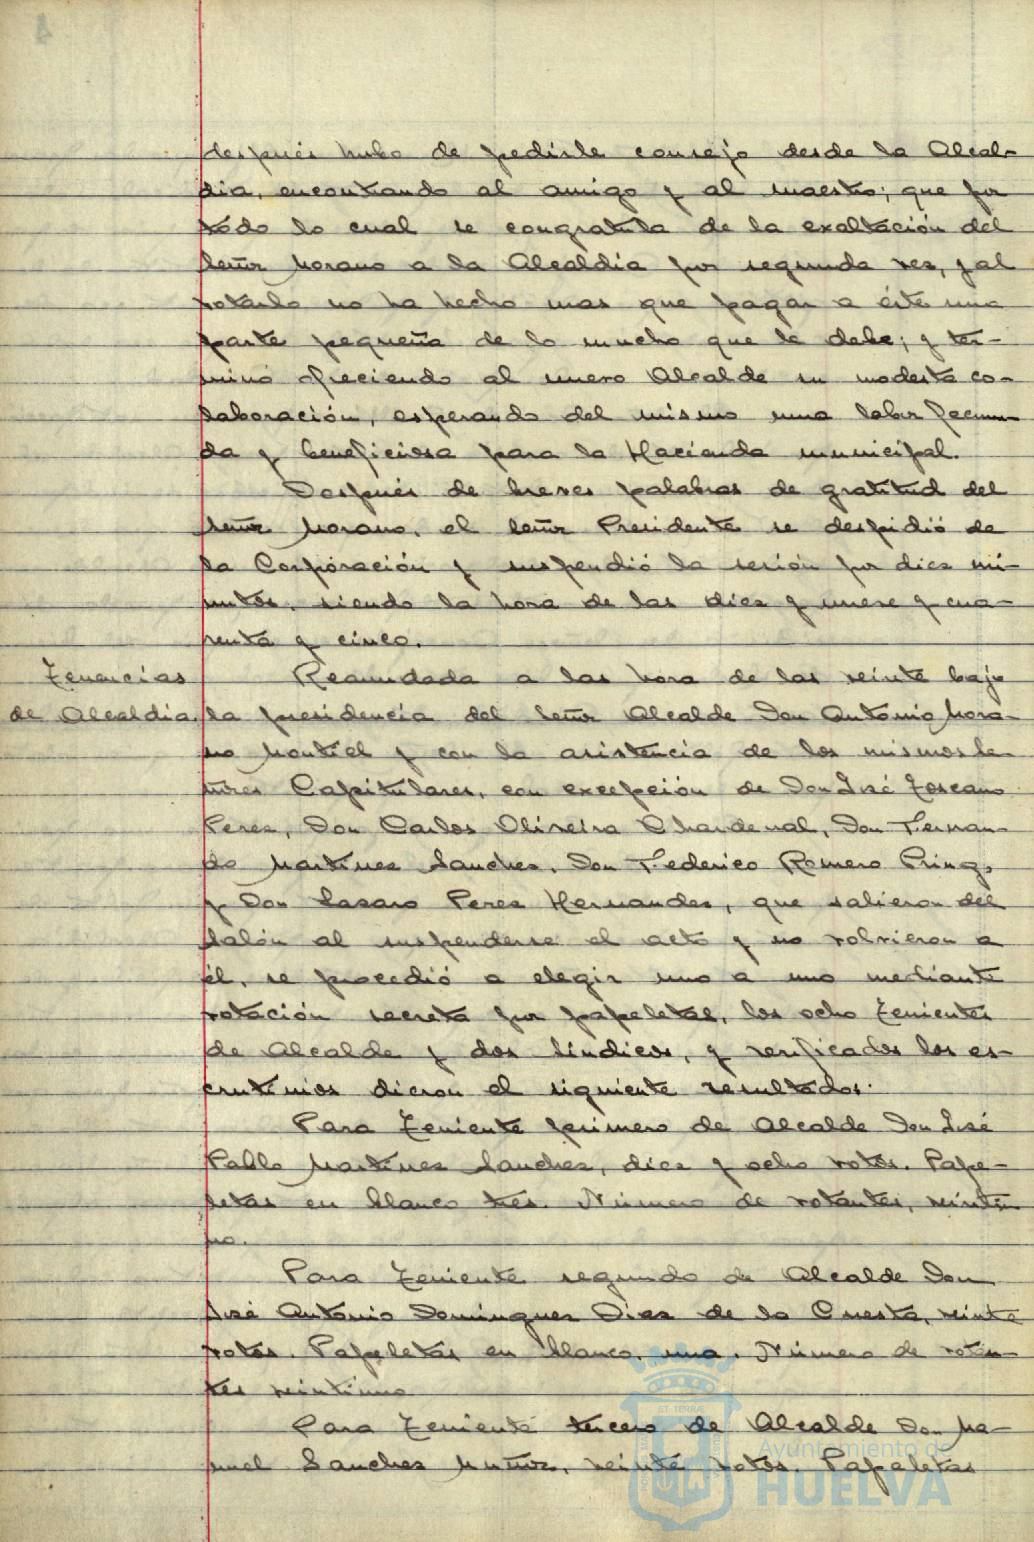 después hubo de pedirle consejo desde la Alcal-
día, encontrando al amigo y al maestro; que por
todo lo cual se congratula de la exaltación del
Señor Morano a la Alcaldía por segunda vez, y al
votarlo no ha hecho mas que pagar a éste una
parte pequeña de lo mucho que le debe; y ter-
minó ofreciendo al nuevo Alcalde su modesta co-
laboración, esperando del mismo una labor fecun-
da y beneficiosa para la Hacienda municipal.
Después de breves palabras de gratitud del
Señor Morano, el Señor Presidente se despidió de
la Corporación y suspendió la sesión por diez mi-
nutos, siendo la hora de las diez y nueve y cua-
renta y cinco.
Tenencias
de Alcaldía.
Reanudada a las hora de las veinte bajo
la presidencia del Señor Alcalde Don Antonio Mora-
no Montiel y con la asistencia de los mismos Se-
ñores Capitulares, con excepción de Don José Toscano
Perez, Don Carlos Oliveira Chardenal, Don Fernan-
do Martinez Sanchez, Don Federico Romero Pring,
y Don Lazaro Perez Hernandez, que salieron del
Salón al suspenderse el acto y no volvieron a
él, se procedió a elegir uno a uno mediante
votación secreta por papeletas, los ocho Tenientes
de Alcalde y dos Síndicos, y verificados los es-
crutinios dieron el siguiente resultados:
Para Teniente primero de Alcalde Don José
Pablo Martinez Sanchez, diez y ocho votos. Pape-
letas en blanco tres. Número de votantes, veintiu-
no.
Para Teniente segundo de Alcalde Don
José Antonio Dominguez Diaz de la Cuesta, veinte
votos. Papeletas en blanco, una. Número de votan-
tes veintiuno
Para Teniente tercero de Alcalde Don Ma-
nuel Sanchez Muñoz, veinte votos. Papeletas
Ayuntamiento de
HUELVA